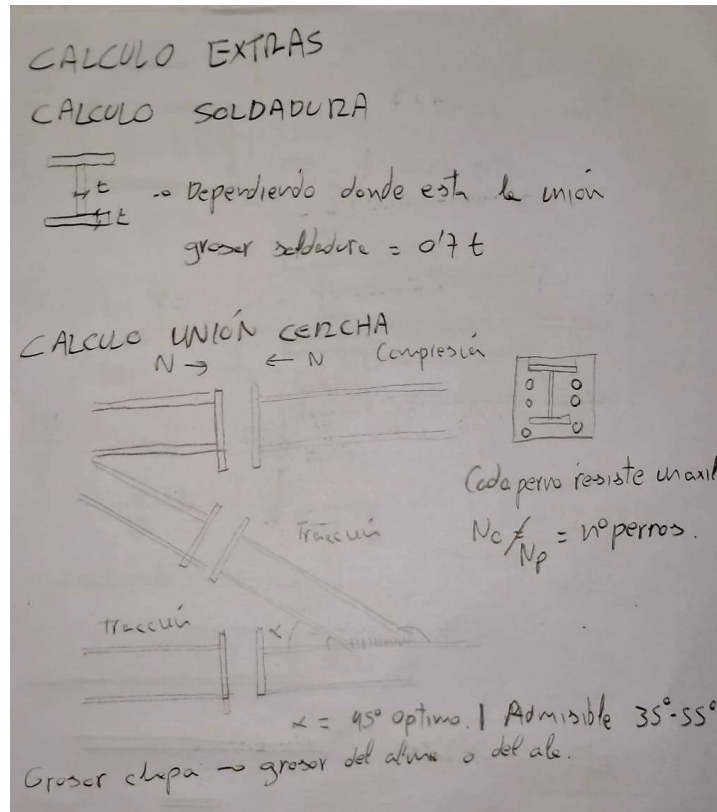 CALCULO EXTRAS
CALCULO SOLDADURA
t
t
→ Dependiendo donde esta la unión
grosor soldadura = 0'7 t
CALCULO UNIÓN CERCHA
N → ← N Compresión
Cada perno resiste un axil
Nc/Np = nº pernos.
Tracción
Tracción
α
α = 45° optimo. | Admisible 35°-55°
Grosor chapa → grosor del alma o del ala.